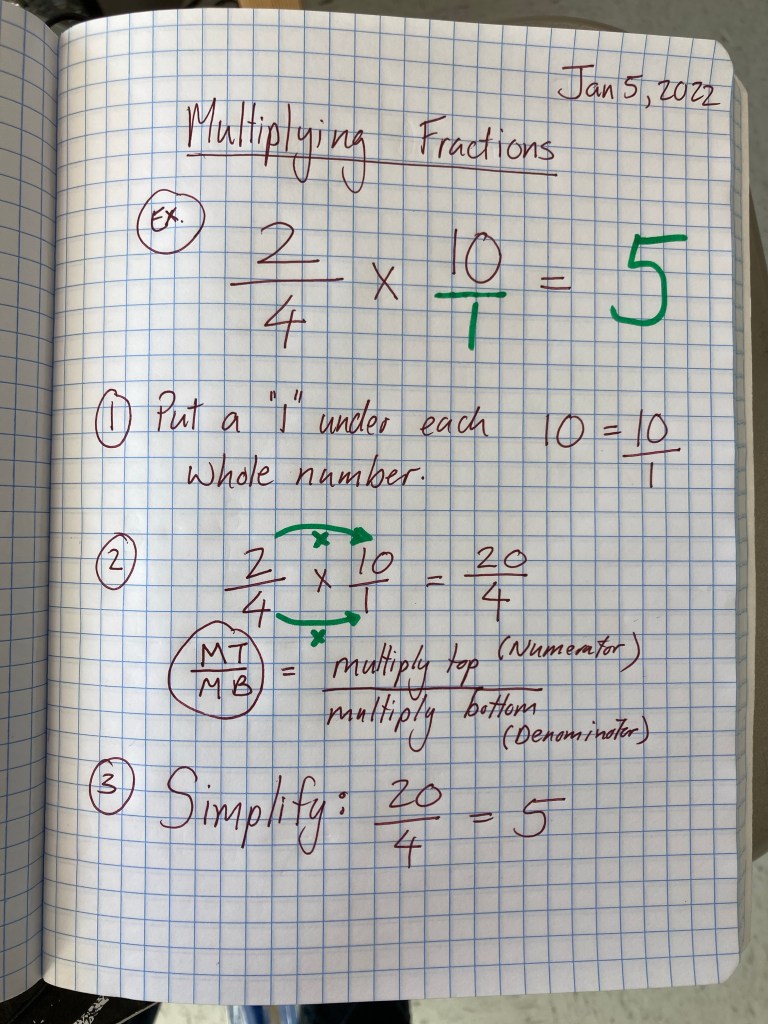 Jan 5, 2022
Multiplying Fractions
EX.
2/4 x 10/1 = 5
① Put a "1" under each 10 = 10/1
whole number.
② 2/4 x 10/1 = 20/4
x
x
MT/MB = multiply top (Numerator) / multiply bottom (Denominator)
③ Simplify: 20/4 = 5